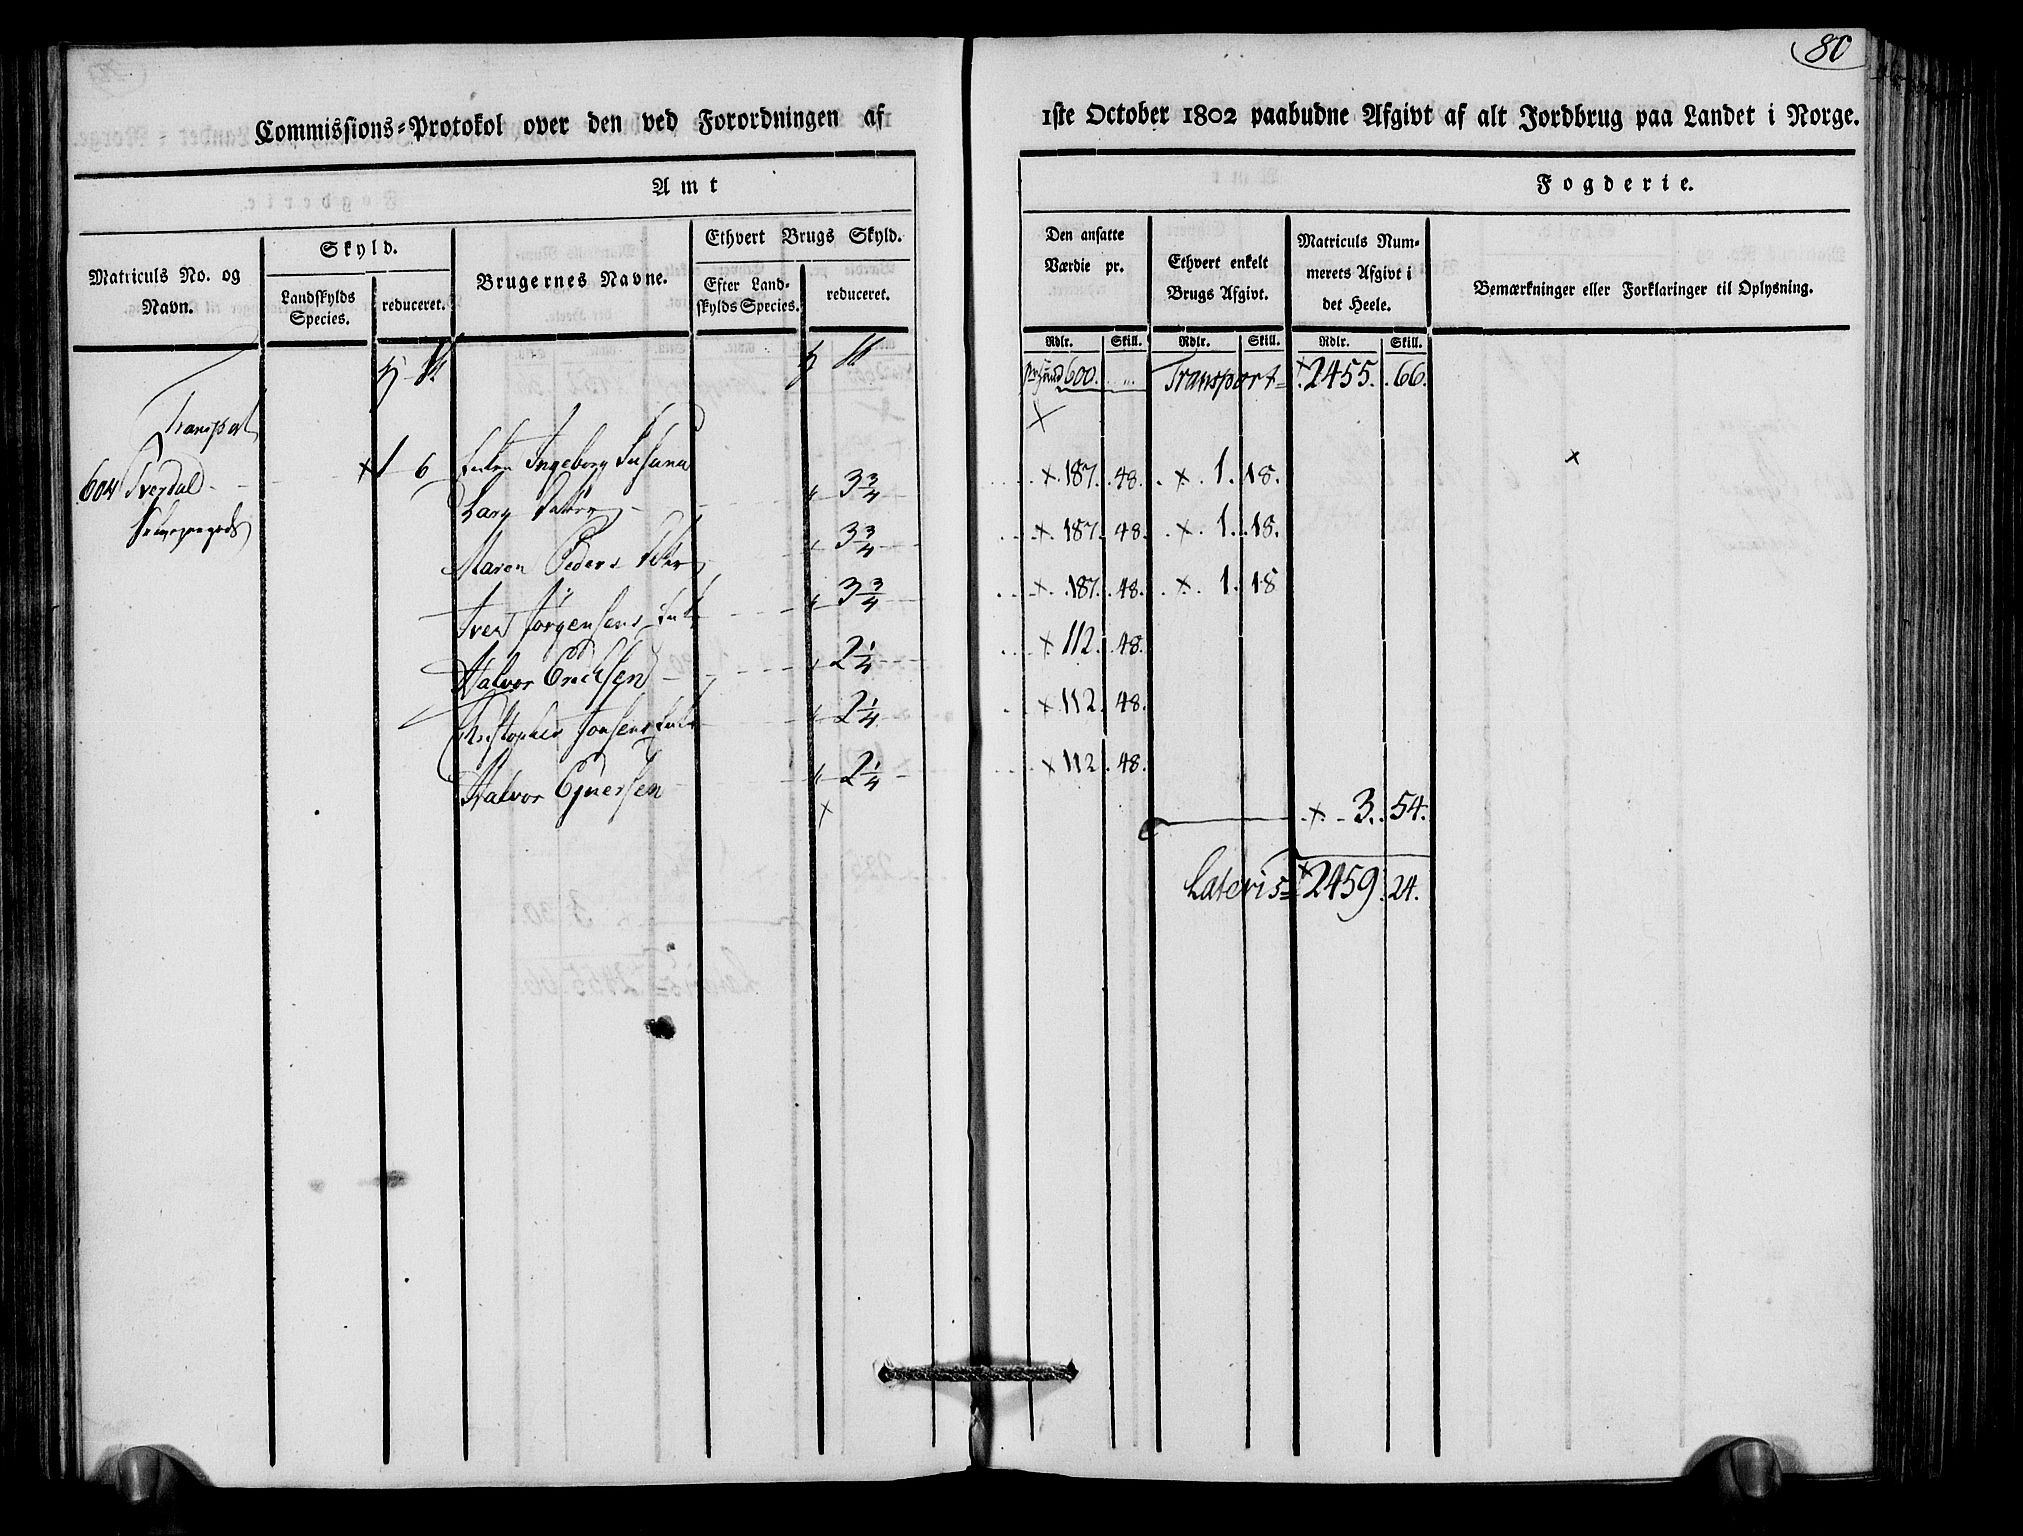 80
Commissions=Protokol over den ved Forordningen af 1ste October 1802 paabudne Afgivt af alt Jordbrug paa Landet i Norge.
Amt Fogderie.
Matriculs No. og Navn.
Skyld.
Landskylds Species.
reduceret.
Brugernes Navne.
Ethvert Brugs Skyld.
Efter Landskylds Species.
reduceret.
Den ansatte Værdie pr.
Ethvert enkelt Brugs Afgivt.
Matriculs Nummerets Afgivt i det Heele.
Bemærkninger eller Forklaringer til Oplysning.
Rdlr. Skill. Rdlr. Skill. Rdlr. Skill.
600. Transport 2455. 66.
Transport
604 1 6 Enken Ingeborg Susana
Lars 3 3/4 187. 48. 1. 18.
Maren Peders 3 3/4 187. 48. 1. 18.
Iver Jörgensens Enke 3 3/4 187. 48. 1. 18
Halvor Erichsen 2 1/4 112. 48.
Christopher Jonsens Enke 2 1/4 112 48.
Halvor 2 1/4 112. 48.
3. 54.
Lateris 2459. 24.